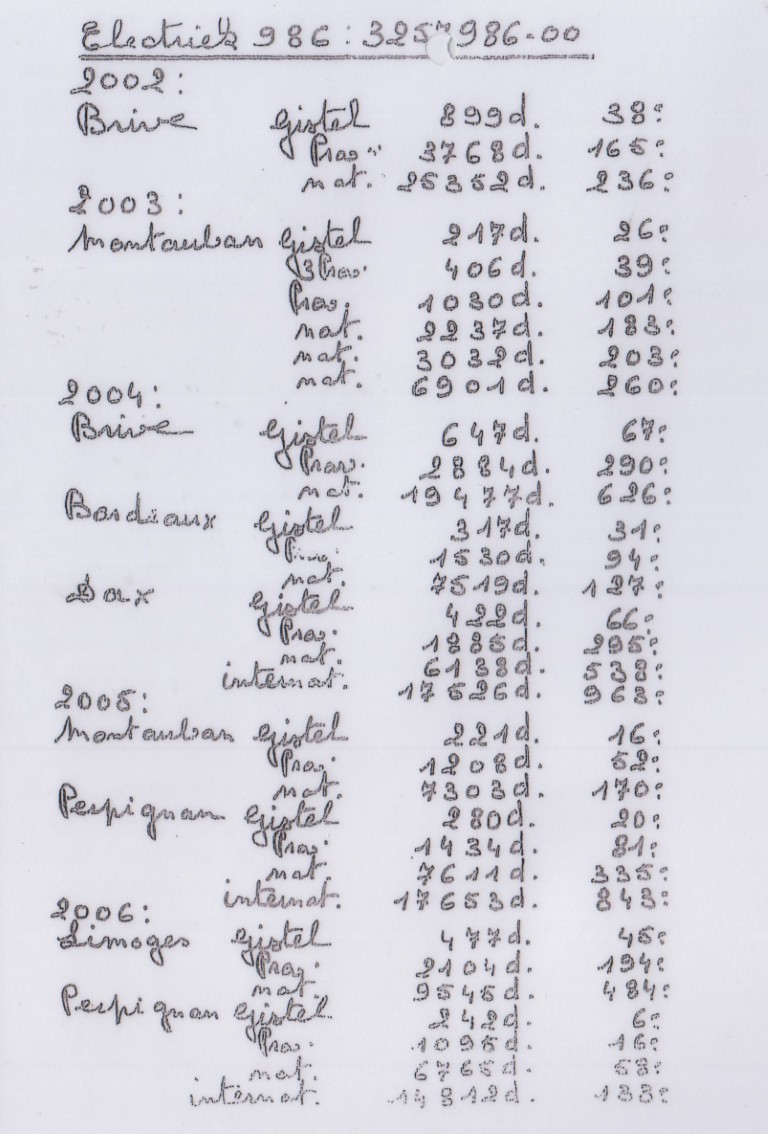 Electriek 986: 3257986-00
2002:
Brive Gistel 899d. 38e
Prov. 3768d. 165e
nat. 25352d. 236e
2003:
Montauban Gistel 217d. 26e
3Prov. 406d. 39e
Prov. 1030d. 101e
nat. 2237d. 183e
nat. 3032d. 203e
nat. 6901d. 260e
2004:
Brive Gistel 647d. 67e
Prov. 2884d. 290e
nat. 19477d. 626e
Bordeaux Gistel 317d. 31e
Prov. 1530d. 94e
nat. 7519d. 127e
Dax Gistel 422d. 66e
Prov. 1885d. 295e
nat. 6138d. 538e
internat. 17526d. 963e
2005:
Montauban Gistel 221d. 16e
Prov. 1208d. 52e
nat. 7303d. 170e
Perpignan Gistel 280d. 20e
Prov. 1434d. 81e
nat. 7611d. 335e
internat. 17653d. 843e
2006:
Limoges Gistel 477d. 45e
Prov. 2104d. 194e
nat. 9545d. 484e
Perpignan Gistel 242d. 6e
Prov. 1095d. 16e
nat. 6765d. 58e
internat. 14812d. 133e